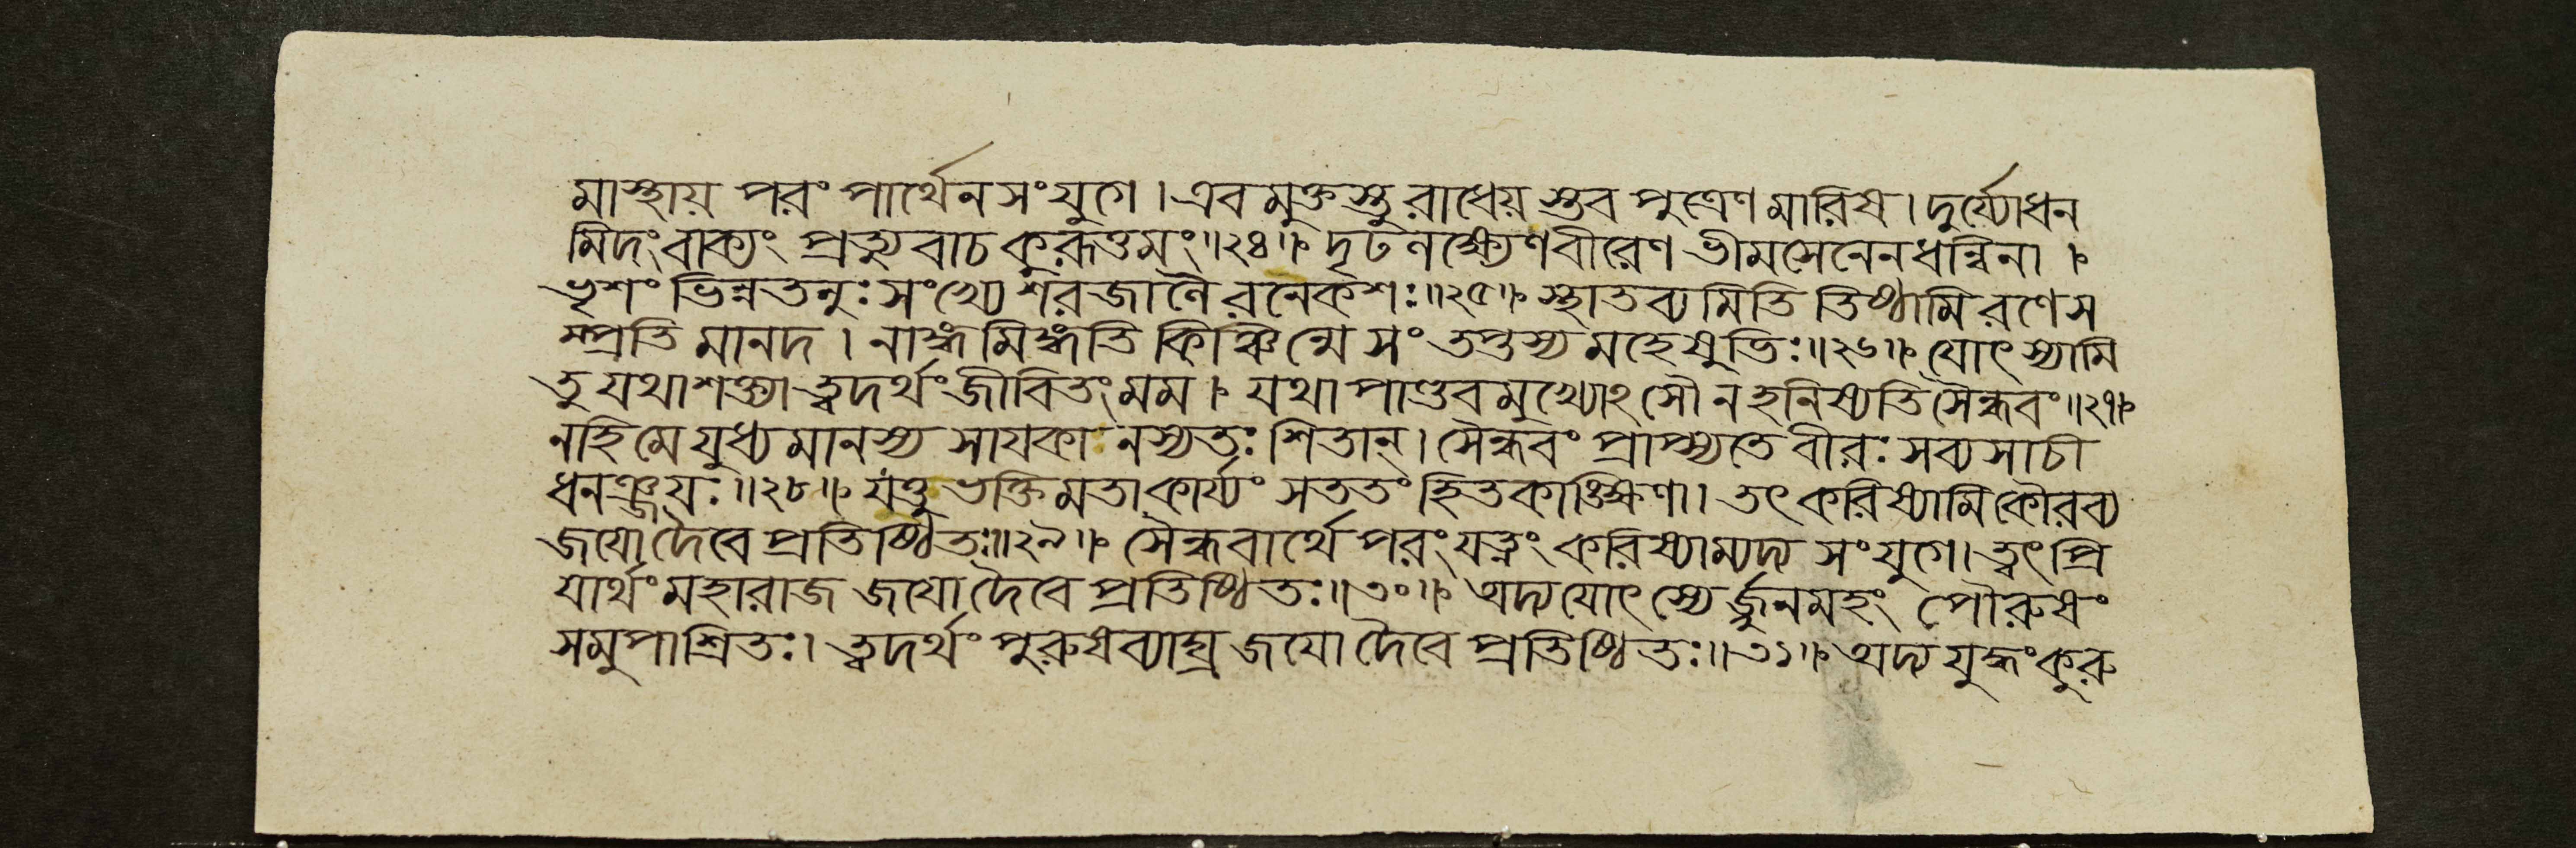 মাস্থায় পরং পার্থেন সংযুগে । এবমুক্তস্তু রাধেয়স্তব পুত্রেণ মারিষ । দুর্য্যোধন
মিদং বাক্যং প্রত্যুবাচ কুরূত্তমং ॥ ২৪ ॥ দৃঢনক্ষ্যেণ বীরেণ ভীমসেনেন ধন্বিনা ।
ভৃশং ভিন্নতনুঃ সংখ্যে শরজানৈরনেকশঃ ॥ ২৫ ॥ স্থাতব্যমিতি তিষ্ঠামি রণে স
ম্প্রতি মানদ । নাঙ্গমিঙ্গতি কিঞ্চিন্মে সংতপ্তস্য মহেষুভিঃ ॥ ২৬ ॥ যোৎস্যামি
তু যথাশক্ত্যা ত্বদর্থং জীবিতং মম । যথা পাণ্ডবমুখ্যোঽসৌ ন হনিষ্যতি সৈন্ধবং ॥ ২৭ ॥
ন হি মে যুধ্যমানস্য সাযকানস্যতঃ শিতান্ । সৈন্ধবং প্রাপ্স্যতে বীরঃ সব্যসাচী
ধনঞ্জযঃ ॥ ২৮ ॥ যত্তু ভক্তিমতা কার্য্যং সততং হিতকাঙ্ক্ষিণা । তৎ করিষ্যামি কৌরব্য
জযো দৈবে প্রতিষ্ঠিতঃ ॥ ২৯ ॥ সৈন্ধবার্থে পরং যত্নং করিষ্যাম্যদ্য সংযুগে । ত্বৎপ্রি
যার্থং মহারাজ জযো দৈবে প্রতিষ্ঠিতঃ ॥ ৩০ ॥ অদ্য যোৎস্যের্জ্জুনমহং পৌরুষং
সমুপাশ্রিতঃ । ত্বদর্থং পুরুষব্যাঘ্র জযো দৈবে প্রতিষ্ঠিতঃ ॥ ৩১ ॥ অদ্য যুদ্ধং কুরু